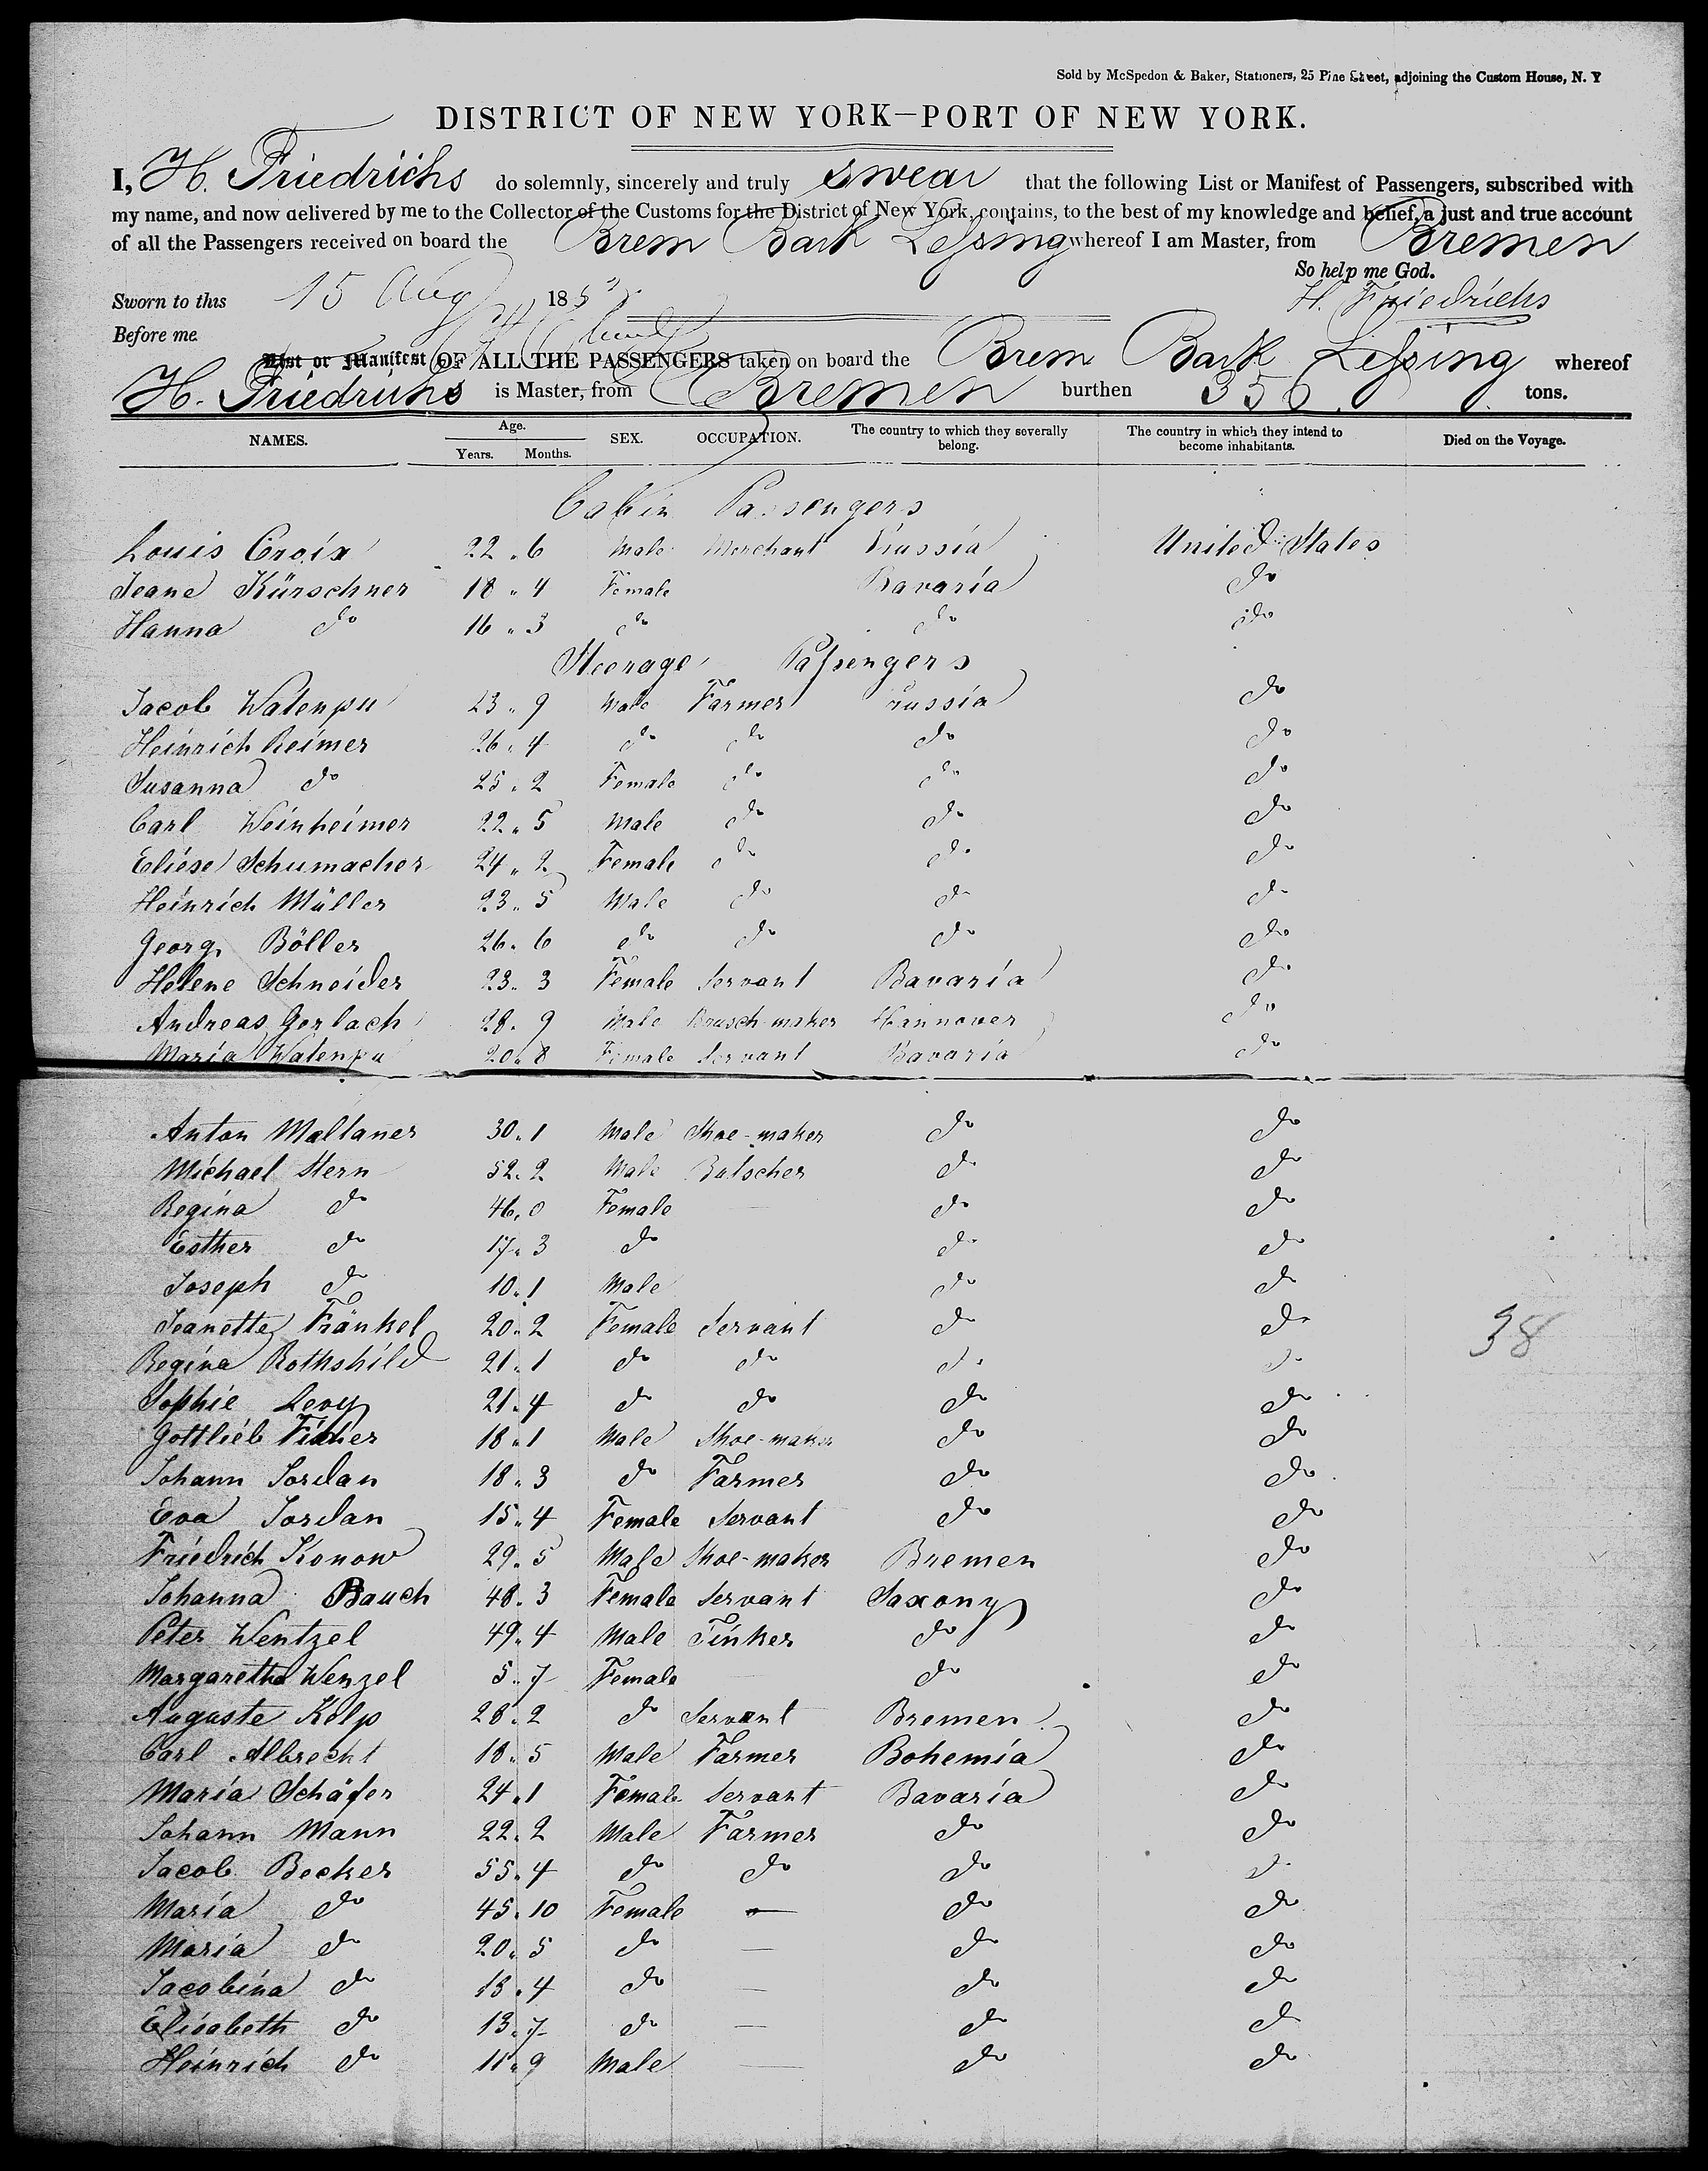 Sold by McSpedon & Baker, Stationers, 25 Pine Street, adjoining the Custom House, N. Y
DISTRICT OF NEW YORK—PORT OF NEW YORK.
I, H. Friedrichs do solemnly, sincerely and truly swear that the following List or Manifest of Passengers, subscribed with
my name, and now delivered by me to the Collector of the Customs for the District of New York, contains, to the best of my knowledge and belief, a just and true account
of all the Passengers received on board the Brem Bark Lessing whereof I am Master, from Bremen
So help me God.
Sworn to this 15 Aug 185 H. Friedrichs
Before me
List or Manifest OF ALL THE PASSENGERS taken on board the Brem Bark Lessing whereof
H. Friedrichs is Master, from Bremen burthen 356 tons.
NAMES. Age. Years. Months. SEX. OCCUPATION. The country to which they severally belong. The country in which they intend to become inhabitants. Died on the Voyage.
Cabin Passengers
Louis Croix 22 „ 6 Male Merchant Prussia United States
Jeane Kürschner 18 „ 4 Female Bavaria do
Hanna do 16 „ 3 do do do
Steerage Passengers
Jacob Watenpu 23 „ 9 Male Farmer Prussia do
Heinrich Reimer 26 „ 4 do do do do
Susanna do 25 „ 2 Female do do do
Carl Weinheimer 22 „ 5 Male do do do
Eliese Schumacher 24 „ 2 Female do do do
Heinrich Müller 23 „ 5 Male do do do
Georg Böller 26 „ 6 do do do do
Helene Schneider 23 „ 3 Female Servant Bavaria do
Andreas Gerlach 28 „ 9 Male Brusch-maker Hannover do
Maria Watenpu 20 „ 8 Female Servant Bavaria do
Anton Maltaner 30 „ 1 Male Shoe-maker do do
Michael Stern 52 „ 2 Male Butscher do do
Regina do 46 „ 0 Female do do
Esther do 17 „ 3 do do do
Joseph do 10 „ 1 Male do do
Jeanette Fränkel 20 „ 2 Female Servant do do 38
Regina Rothshild 21 „ 1 do do do do
Sophie Levy 21 „ 4 do do do do
Gottlieb Fischer 18 „ 1 Male Shoe-maker do do
Johann Jordan 18 „ 3 do Farmer do do
Eva Jordan 15 „ 4 Female Servant do do
Friedrich Konow 29 „ 5 Male Shoe-maker Bremen do
Johanna Bauch 48 „ 3 Female Servant Saxony do
Peter Wentzel 49 „ 4 Male Tinker do do
Margaretha Wenzel 5 „ 7 Female do do
Auguste Kolp 28 „ 2 do Servant Bremen do
Carl Albrecht 18 „ 5 Male Farmer Bohemia do
Maria Schäfer 24 „ 1 Female Servant Bavaria do
Johann Mann 22 „ 2 Male Farmer do do
Jacob Becker 55 „ 4 do do do do
Maria do 45 „ 10 Female — do do
Maria do 20 „ 5 do — do do
Jacobina do 18 „ 4 do — do do
Elisabeth do 13 „ 7 do — do do
Heinrich do 11 „ 9 Male — do do